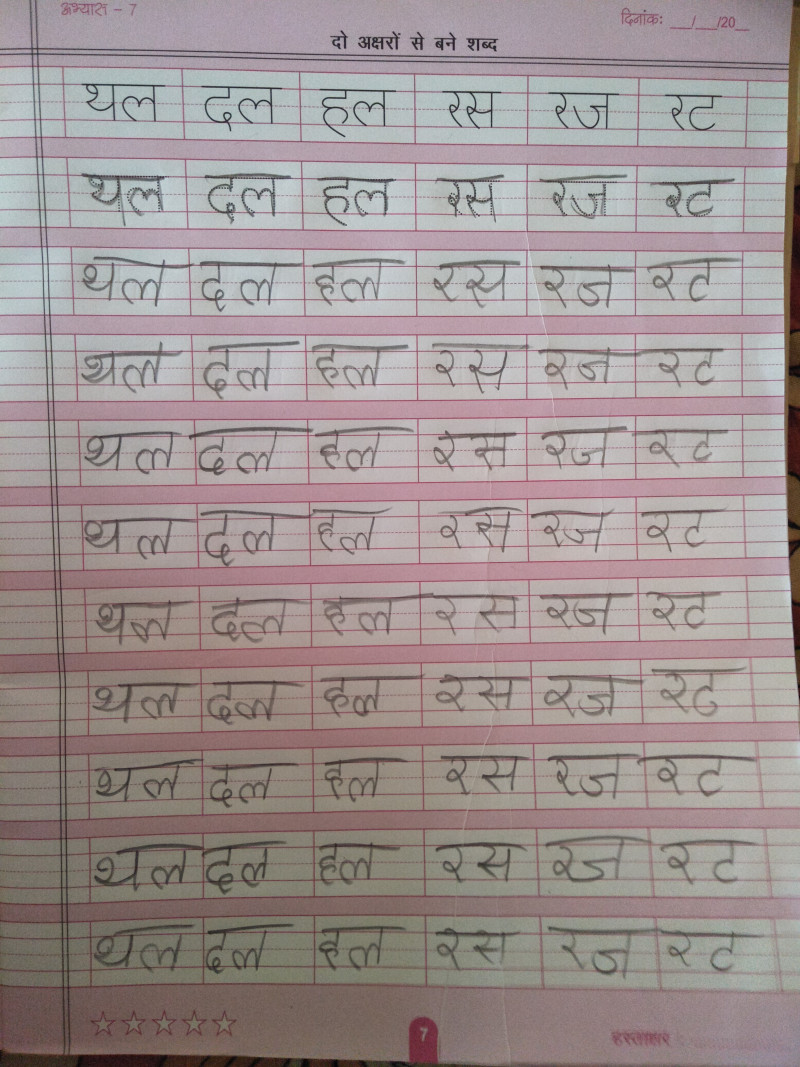 अभ्यास - 7
दिनांक: __/__/20__
दो अक्षरों से बने शब्द
थल दल हल रस रज रट
थल दल हल रस रज रट
थल दल हल रस रज रट
थल दल हल रस रज रट
थल दल हल रस रज रट
थल दल हल रस रज रट
थल दल हल रस रज रट
थल दल हल रस रज रट
थल दल हल रस रज रट
थल दल हल रस रज रट
थल दल हल रस रज रट
7
हस्ताक्षर